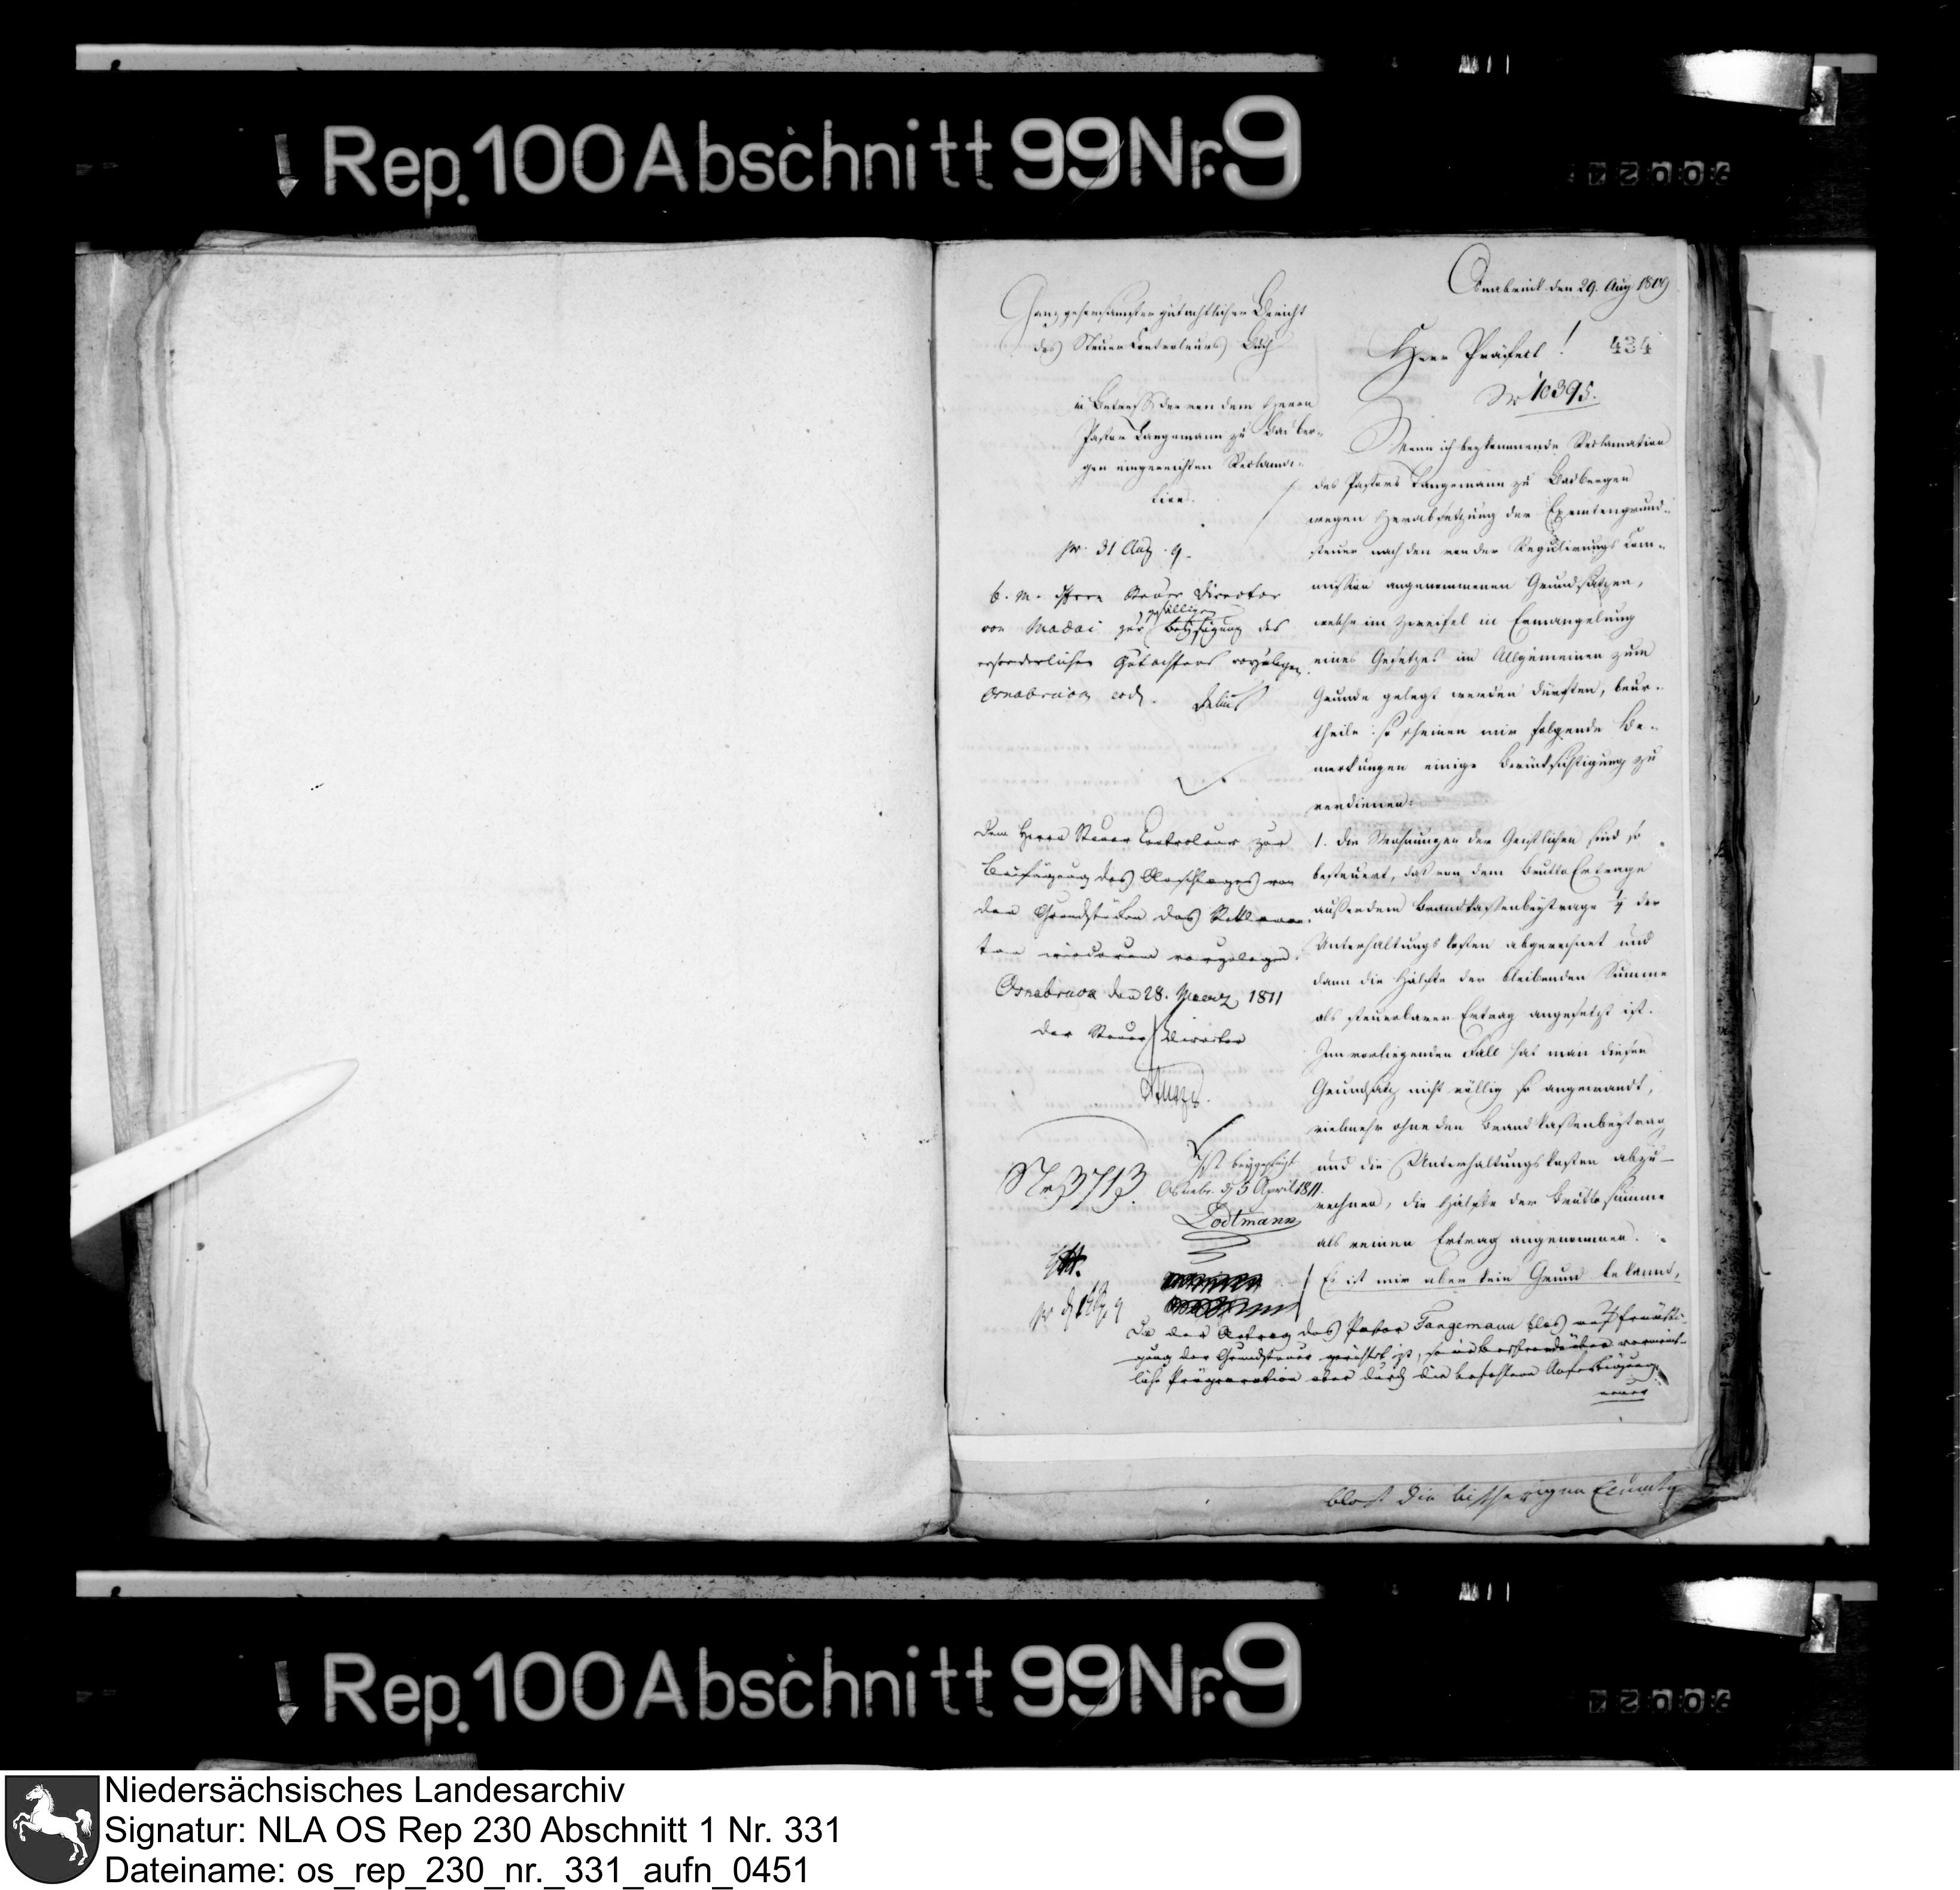 Rep. 100 Abschnitt 99 Nr. 9
Ganz gehorsamster gutachtlicher Bericht
des Steuer Controleurs
in Betreff der von dem Herrn
Pastor Tangemann zu Badber-
gen eingereichten Reclama-
tion.
pr. 31 Aug. 9.
b. m. Herrn Steuer Director
von Madai zur gefälligen Beyfügung des
erforderlichen Gutachtens vorzulegen.
Osnabrück eod. Delius
Dem Herrn Steuer Controleur zur
Beifügung des Anschlages von
den Grundstücken des Reklaman-
ten wiederum vorzulegen.
Osnabrück den 28. Maerz 1811
Der Steuer Director
Nr 3713.
Ist beygefügt
Osnabr. d 5 April 1811.
Lodtmann
Osnabrück den 29. Aug 1809
Herr Präfect!
434
Nr 10395.
Wenn ich beykommende Reclamation
des Pastors Tangemann zu Badbergen
wegen Herabsetzung der Exemtengrund-
steuer nach den von der Regulirungs Com-
mission angenommenen Grundsätzen,
welche im Zweifel in Ermangelung
eines Gesetzes im Allgemeinen zum
Grunde gelegt werden dürften, beur-
theile: so scheinen mir folgende Be-
merkungen einige Berücksichtigung zu
verdienen:
1. Die Wohnungen der Geistlichen sind so
besteuert, daß von dem Brutto Ertrage
außer dem Brandkassenbeytrage 1/4 der
Unterhaltungskosten abgerechnet und
dann die Hälfte der bleibenden Summe
als steuerbarer Ertrag angesetzt ist.
Im vorliegenden Fall hat man diesen
Grundsatz nicht völlig so angewandt,
vielmehr ohne den Brandkassenbeytrag
und die Unterhaltungskosten abzu-
rechnen, die Hälfte der Bruttosumme
als reinen Ertrag angenommen.
Es ist mir aber kein Grund bekannt,
Da der Antrag des Pastor Tangemann blos auf
der Grundsteuer gerichtet ist, so
durch die
neuer
blos die bisherigen
Rep. 100 Abschnitt 99 Nr. 9
Niedersächsisches Landesarchiv
Signatur: NLA OS Rep 230 Abschnitt 1 Nr. 331
Dateiname: os_rep_230_nr._331_aufn_0451